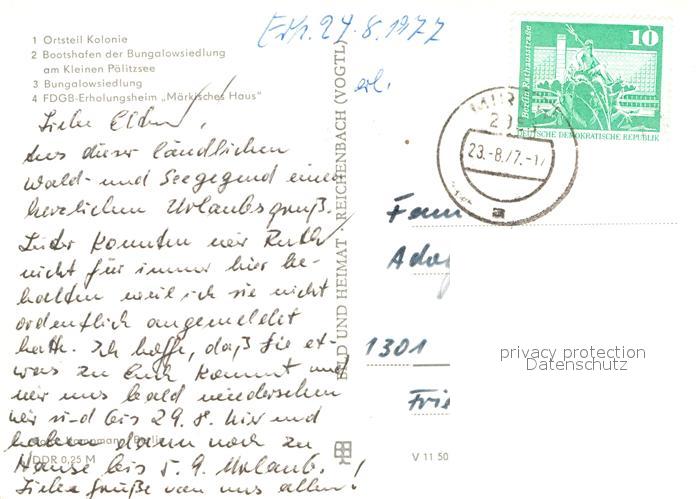 Erh. 24.8.1977
erl.
1 Ortsteil Kolonie
2 Bootshafen der Bungalowsiedlung
am Kleinen Pälitzsee
3 Bungalowsiedlung
4 FDGB-Erholungsheim „Märkisches Haus"
Liebe Eltern,
Aus dieser ländlichen
Wald- und Seegegend einen
herzlichen Urlaubsgruß.
Leider konnten wir Ruth
nicht für immer hier be-
halten weil ich sie nicht
ordentlich angemeldet
hatte. Ich hoffe, daß sie et-
was zu Euch kommt und
wir uns bald wiedersehen
wir sind bis 29.8. hier und
haben dann noch zu
Hause bis 5.9. Urlaub.
Liebe Grüße von uns allen!
Berlin
DDR 0,25 M
BILD UND HEIMAT · REICHENBACH (VOGTL)
V 11 50
10
Berlin Rathausstraße
DEUTSCHE DEMOKRATISCHE REPUBLIK
23.-8.77.-17
Fam
1301
privacy protection
Datenschutz